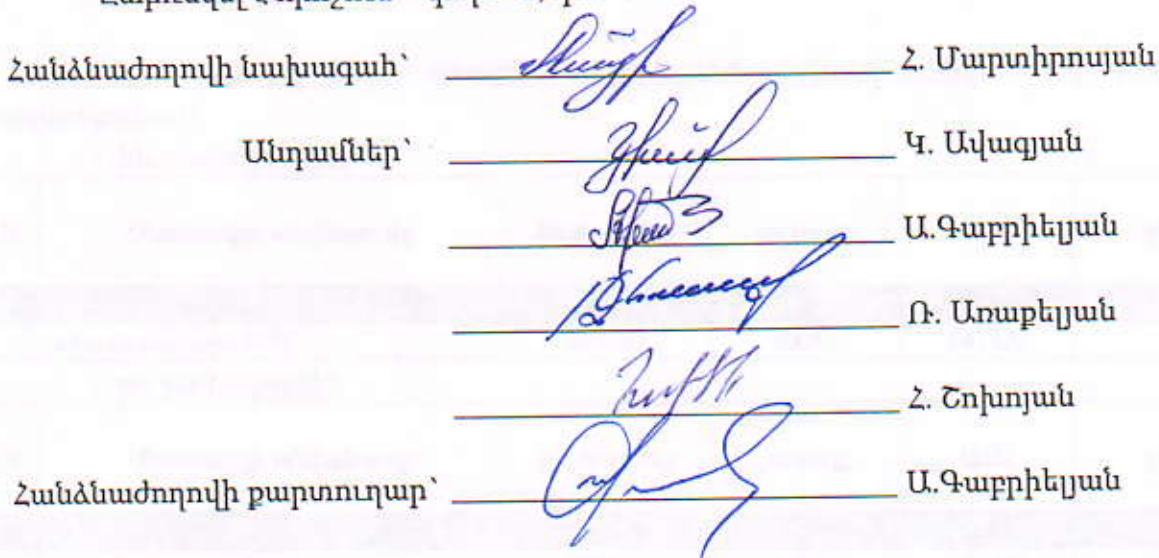 Հանձնաժողովի նախագահ` Հ. Մարտիրոսյան
Անդամներ` Կ. Ավագյան
Ա.Գաբրիելյան
Ռ. Առաքելյան
Հ. Շոխոյան
Հանձնաժողովի քարտուղար` Ա.Գաբրիելյան